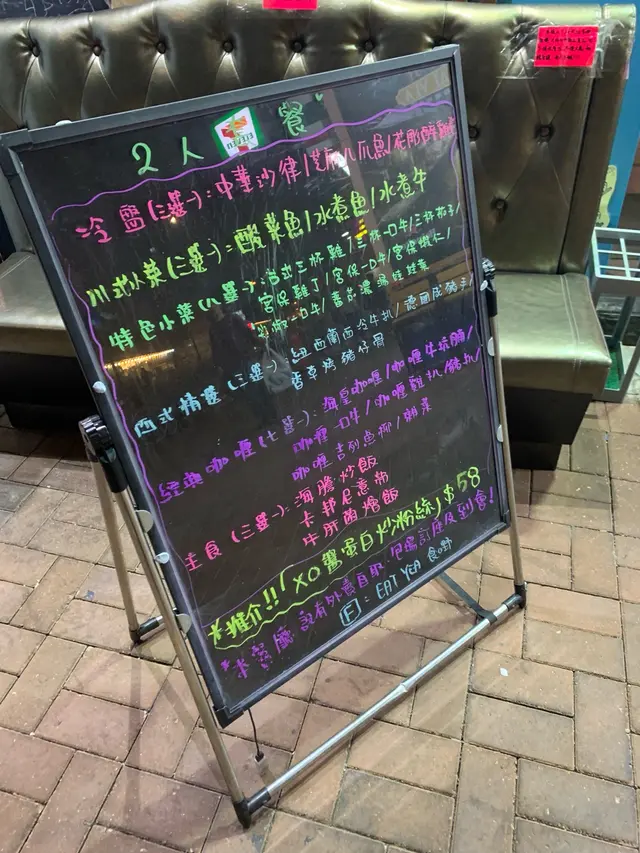 2人 餐
冷盤(三選一):中華沙律/芝麻八爪魚/花彫醉雞
川式小菜(三選一)=酸菜魚/水煮魚/水煮牛
特色小菜(八選一):台式三杯雞/三杯一口牛/三杯茄子/
宮保雞丁/宮保一口牛/宮保蝦仁/
一口牛/番茄濃湯娃娃菜
西式精選(三選一):紐西蘭西冷牛扒/德國咸豬手/
香草烤豬仔骨
經典咖喱(七選一):咖喱/咖喱牛坑腩/
咖喱一口牛/咖喱雞扒/豬扒/
咖喱吉列魚柳/雜菜
主食(三選一):海膽炒飯
卡邦尼意粉
牛肝菌燴飯
*推介!!「XO醬蛋白炒粉絲」$58
*本餐廳設有外賣自取,包場訂座及到會!
F = EAT YEA 食嘢